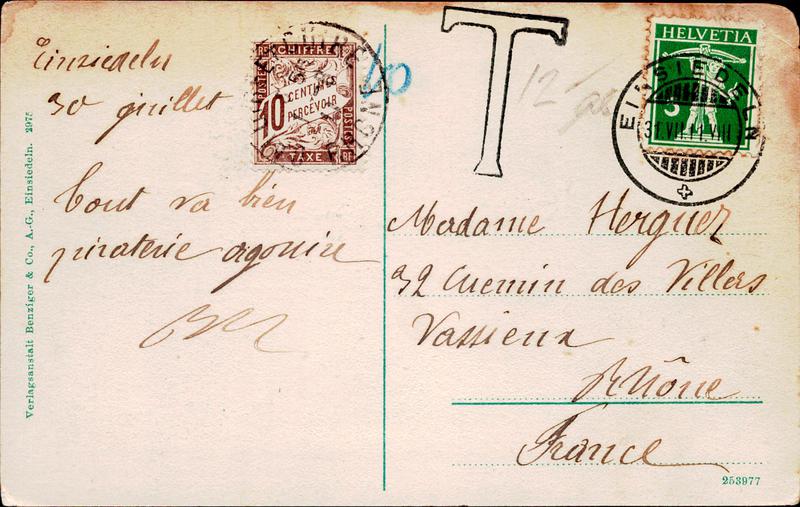 Einsiedeln
30 juillet
Tout va bien
piraterie agonise
Verlagsanstalt Benziger & Co., A.-G., Einsiedeln. 2975
CHIFFRE
POSTES
10
CENTIMES
A PERCEVOIR
POSTES
RF TAXE RF
10
T
12
HELVETIA
5
EINSIEDELN
31.VII.11.VIII
Madame Herguez
32 Chemin des Villers
Vassieux
Rhône
France
253977